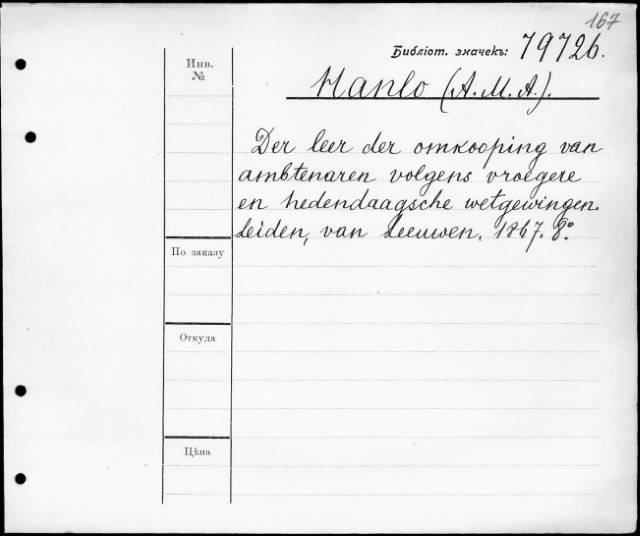 167
Библіот. значекъ: 79726.
Инв.
№
Hanlo (A.M.A.).
Der leer der omkooping van
ambtenaren volgens vroegere
en hedendaagsche wetgewingen.
Leiden, van Leeuwen. 1867. 8.º
По заказу
Откуда
Цѣна